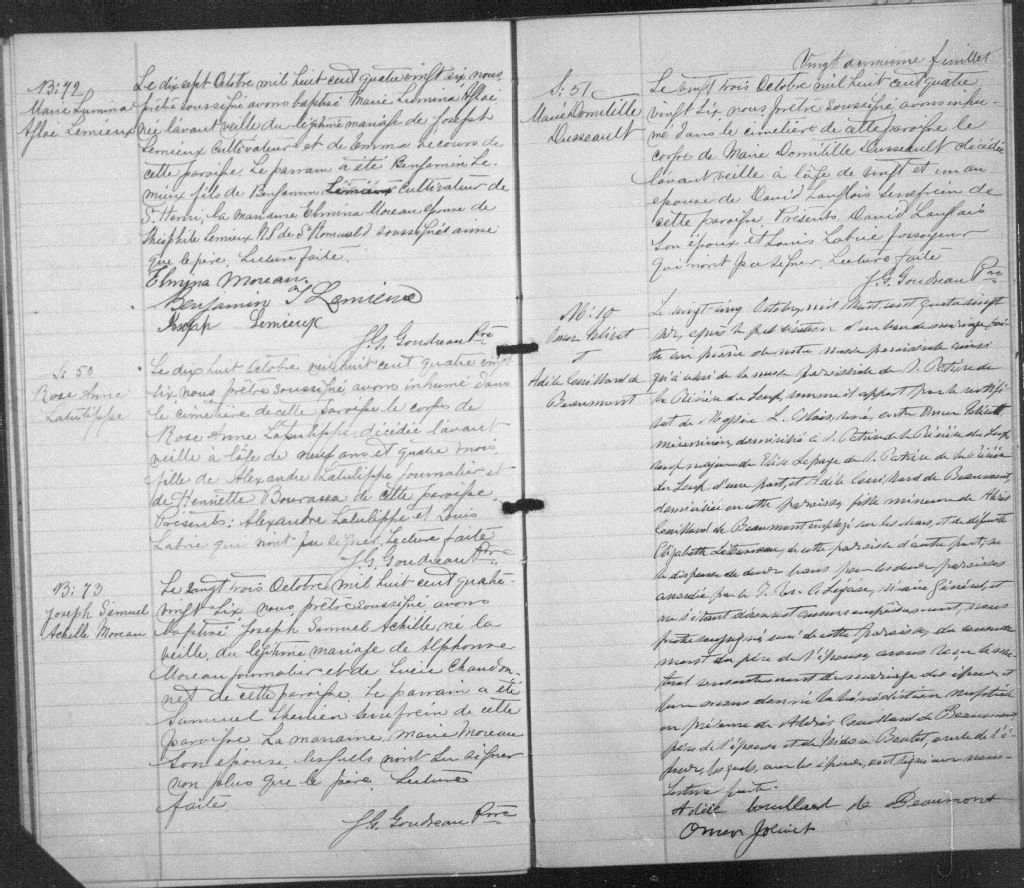 B: 72
Marie Lumina
Aglaé Lemieux
Le dix sept Octobre mil huit cent quatre vingt six, nous
prêtre soussigné avons baptisé Marie Lumina Aglaé
née l'avant veille du légitime mariage de Joseph
Lemieux Cultivateur et de Emma Lécours de
cette paroisse. Le parrain a été Benjamin Le-
mieux fils de Benjamin Lemieux cultivateur de
St Henri, la marraine Elmina Moreau épouse de
Théophile Lemieux N.P. de St Romuald soussignés avec
que le père. Lecture faite.
Elmina Moreau
Benjamin T Lemieux
Joseph Lemieux
J. G. Goudreau Ptre
S: 50
Rose Anne
Latulippe
Le dix huit Octobre mil huit cent quatre vingt
six nous prêtre soussigné, avons inhumé dans
le cimetière de cette paroisse le corps de
Rose Anne Latulippe, décédée l'avant
veille à l'âge de neuf ans et quatre mois
fille de Alexandre Latulippe journalier et
de Henriette Bourassa de cette paroisse.
Présents: Alexandre Latulippe et Louis
Labrie qui n'ont pu signer. Lecture faite
J. G. Goudreau Ptre
B: 73
Joseph Samuel
Achille Moreau
Le vingt trois Octobre mil huit cent quatre-
vingt-six nous prêtre soussigné, avons
baptisé Joseph Samuel Achille, né la
veille, du légitime mariage de Alphonse
Moreau journalier et de Lucie Chandon-
net de cette paroisse. Le parrain a été
Samuel serrefrein de cette
paroisse La marraine, Marie Moreau
son épouse, lesquels n'ont su signer
non plus que le père. Lecture
faite
J. G. Goudreau Ptre
Vingt deuxième feuillet
S: 51
Marie Domitille
Dusseault
Le vingt trois Octobre mil huit cent quatre
vingt six, nous prêtre soussigné avons inhu-
mé dans le cimetière de cette paroisse le
corps de Marie Domitille Dusseault décédée
l'avant veille à l'âge de vingt et un an
épouse de David Langlois serrefrein de
cette paroisse. Présents David Langlais
son époux et Louis Labrie fossoyeur
qui n'ont pu signer. Lecture faite
J. G. Goudreau Ptre
M: 10
Omer Jolicet
&
Adèle Couillard de
Beaumont
Le vingt cinq Octobre, mil huit cent quatre vingt
six, après la publication d'un ban de mariage, fai-
te au prône de notre messe paroissiale ainsi
qu'à celui de la messe paroissiale de St Patrice de
la Rivière du Loup, comme il appert par le certifi-
cat de Messire L. Blais, curé, entre Omer
mécanicien, domicilié à St Patrice de la Rivière du Loup,
fils majeur de Lepage de St Patrice de la Rivière
du Loup, d'une part, et Adèle Couillard de Beaumont,
domiciliée en cette paroisse, fille mineure de Alexis
Couillard de Beaumont employé sur les chars, et de défunte
Elizabeth Létourneau, de cette paroisse d'autre part; vu
la dispense de deux bans pour les deux paroisses
accordée par le C. A. Légaré, Vicaire Général, et
ne s'étant découvert aucun empêchement, nous
prêtre soussigné curé de cette paroisse, du consente-
ment du père de l'épouse, avons reçu le mu-
tuel consentement de mariage des époux, et
leur avons donné la bénédiction nuptiale
en présence de Alexis Couillard de Beaumont,
père de l'épouse et de Boutet, oncle de l'é-
poux, lesquels, avec les époux, ont signé avec nous.
Lecture faite.
Adèle Couillard de Beaumont
Omer Jolicet